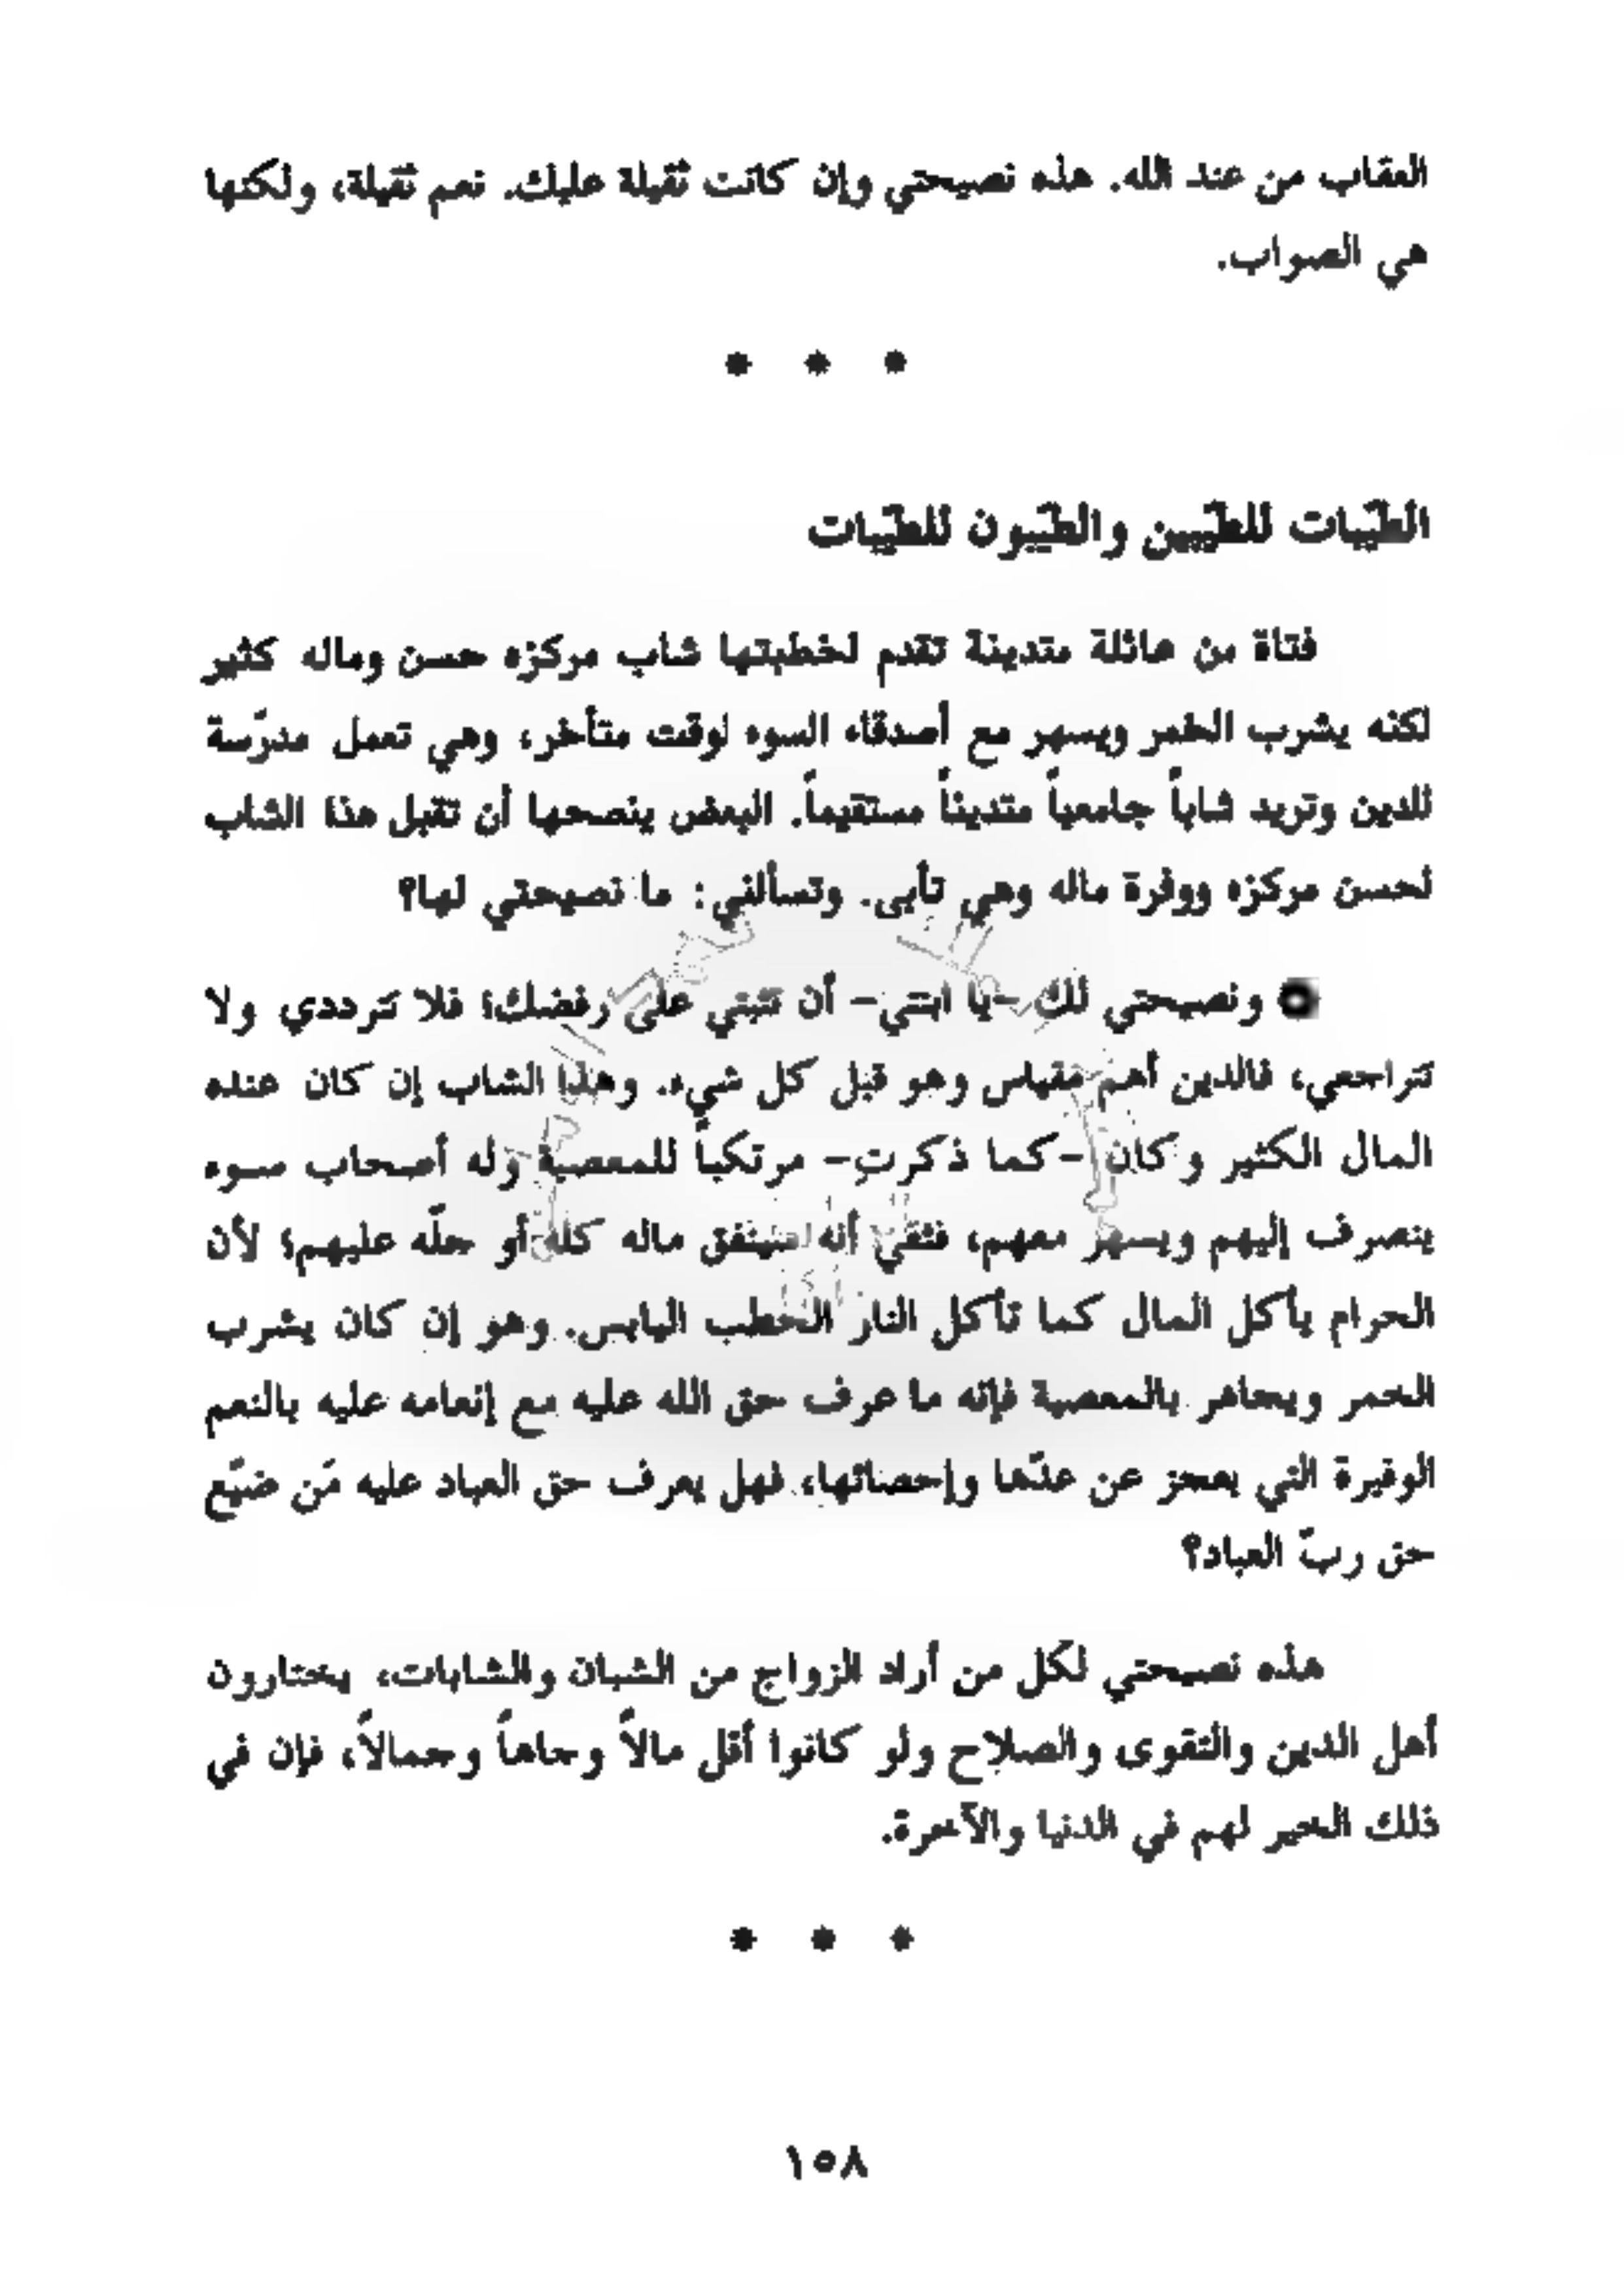 العقاب من عند الله. هذه نصيحتي وإن كانت ثقيلة عليك. نعم ثقيلة، ولكنها
هي الصواب.
* * *
الطيّبات للطيّبين والطيّبون للطيّبات
فتاة من عائلة متدينة تقدم لخطبتها شاب مركزه حسن وماله كثير
لكنه يشرب الخمر ويسهر مع أصدقاء السوء لوقت متأخر، وهي تعمل مدرّسة
للدين وتريد شاباً جامعياً متديناً مستقيماً. البعض ينصحها أن تقبل هذا الشاب
لحسن مركزه ووفرة ماله وهي تأبى. وتسألني: ما نصيحتي لها؟
ونصيحتي لك -يا ابنتي- أن تثبتي على رفضك؛ فلا تترددي ولا
تتراجعي، فالدين أهم مقياس وهو قبل كل شيء. وهذا الشاب إن كان عنده
المال الكثير وكان -كما ذكرتِ- مرتكباً للمعصية وله أصحاب سوء
ينصرف إليهم ويسهر معهم، فثقي أنه سينفق ماله كله أو جلّه عليهم؛ لأن
الحرام يأكل المال كما تأكل النار الحطب اليابس. وهو إن كان يشرب
الخمر ويجاهر بالمعصية فإنه ما عرف حق الله عليه مع إنعامه عليه بالنعم
الوفيرة التي يعجز عن عدّها وإحصائها، فهل يعرف حق العباد عليه مَن ضيّع
حق ربّ العباد؟
هذه نصيحتي لكل من أراد الزواج من الشبان والشابات، يختارون
أهل الدين والتقوى والصلاح ولو كانوا أقل مالاً وجاهاً وجمالاً، فإن في
ذلك الخير لهم في الدنيا والآخرة.
* * *
١٥٨